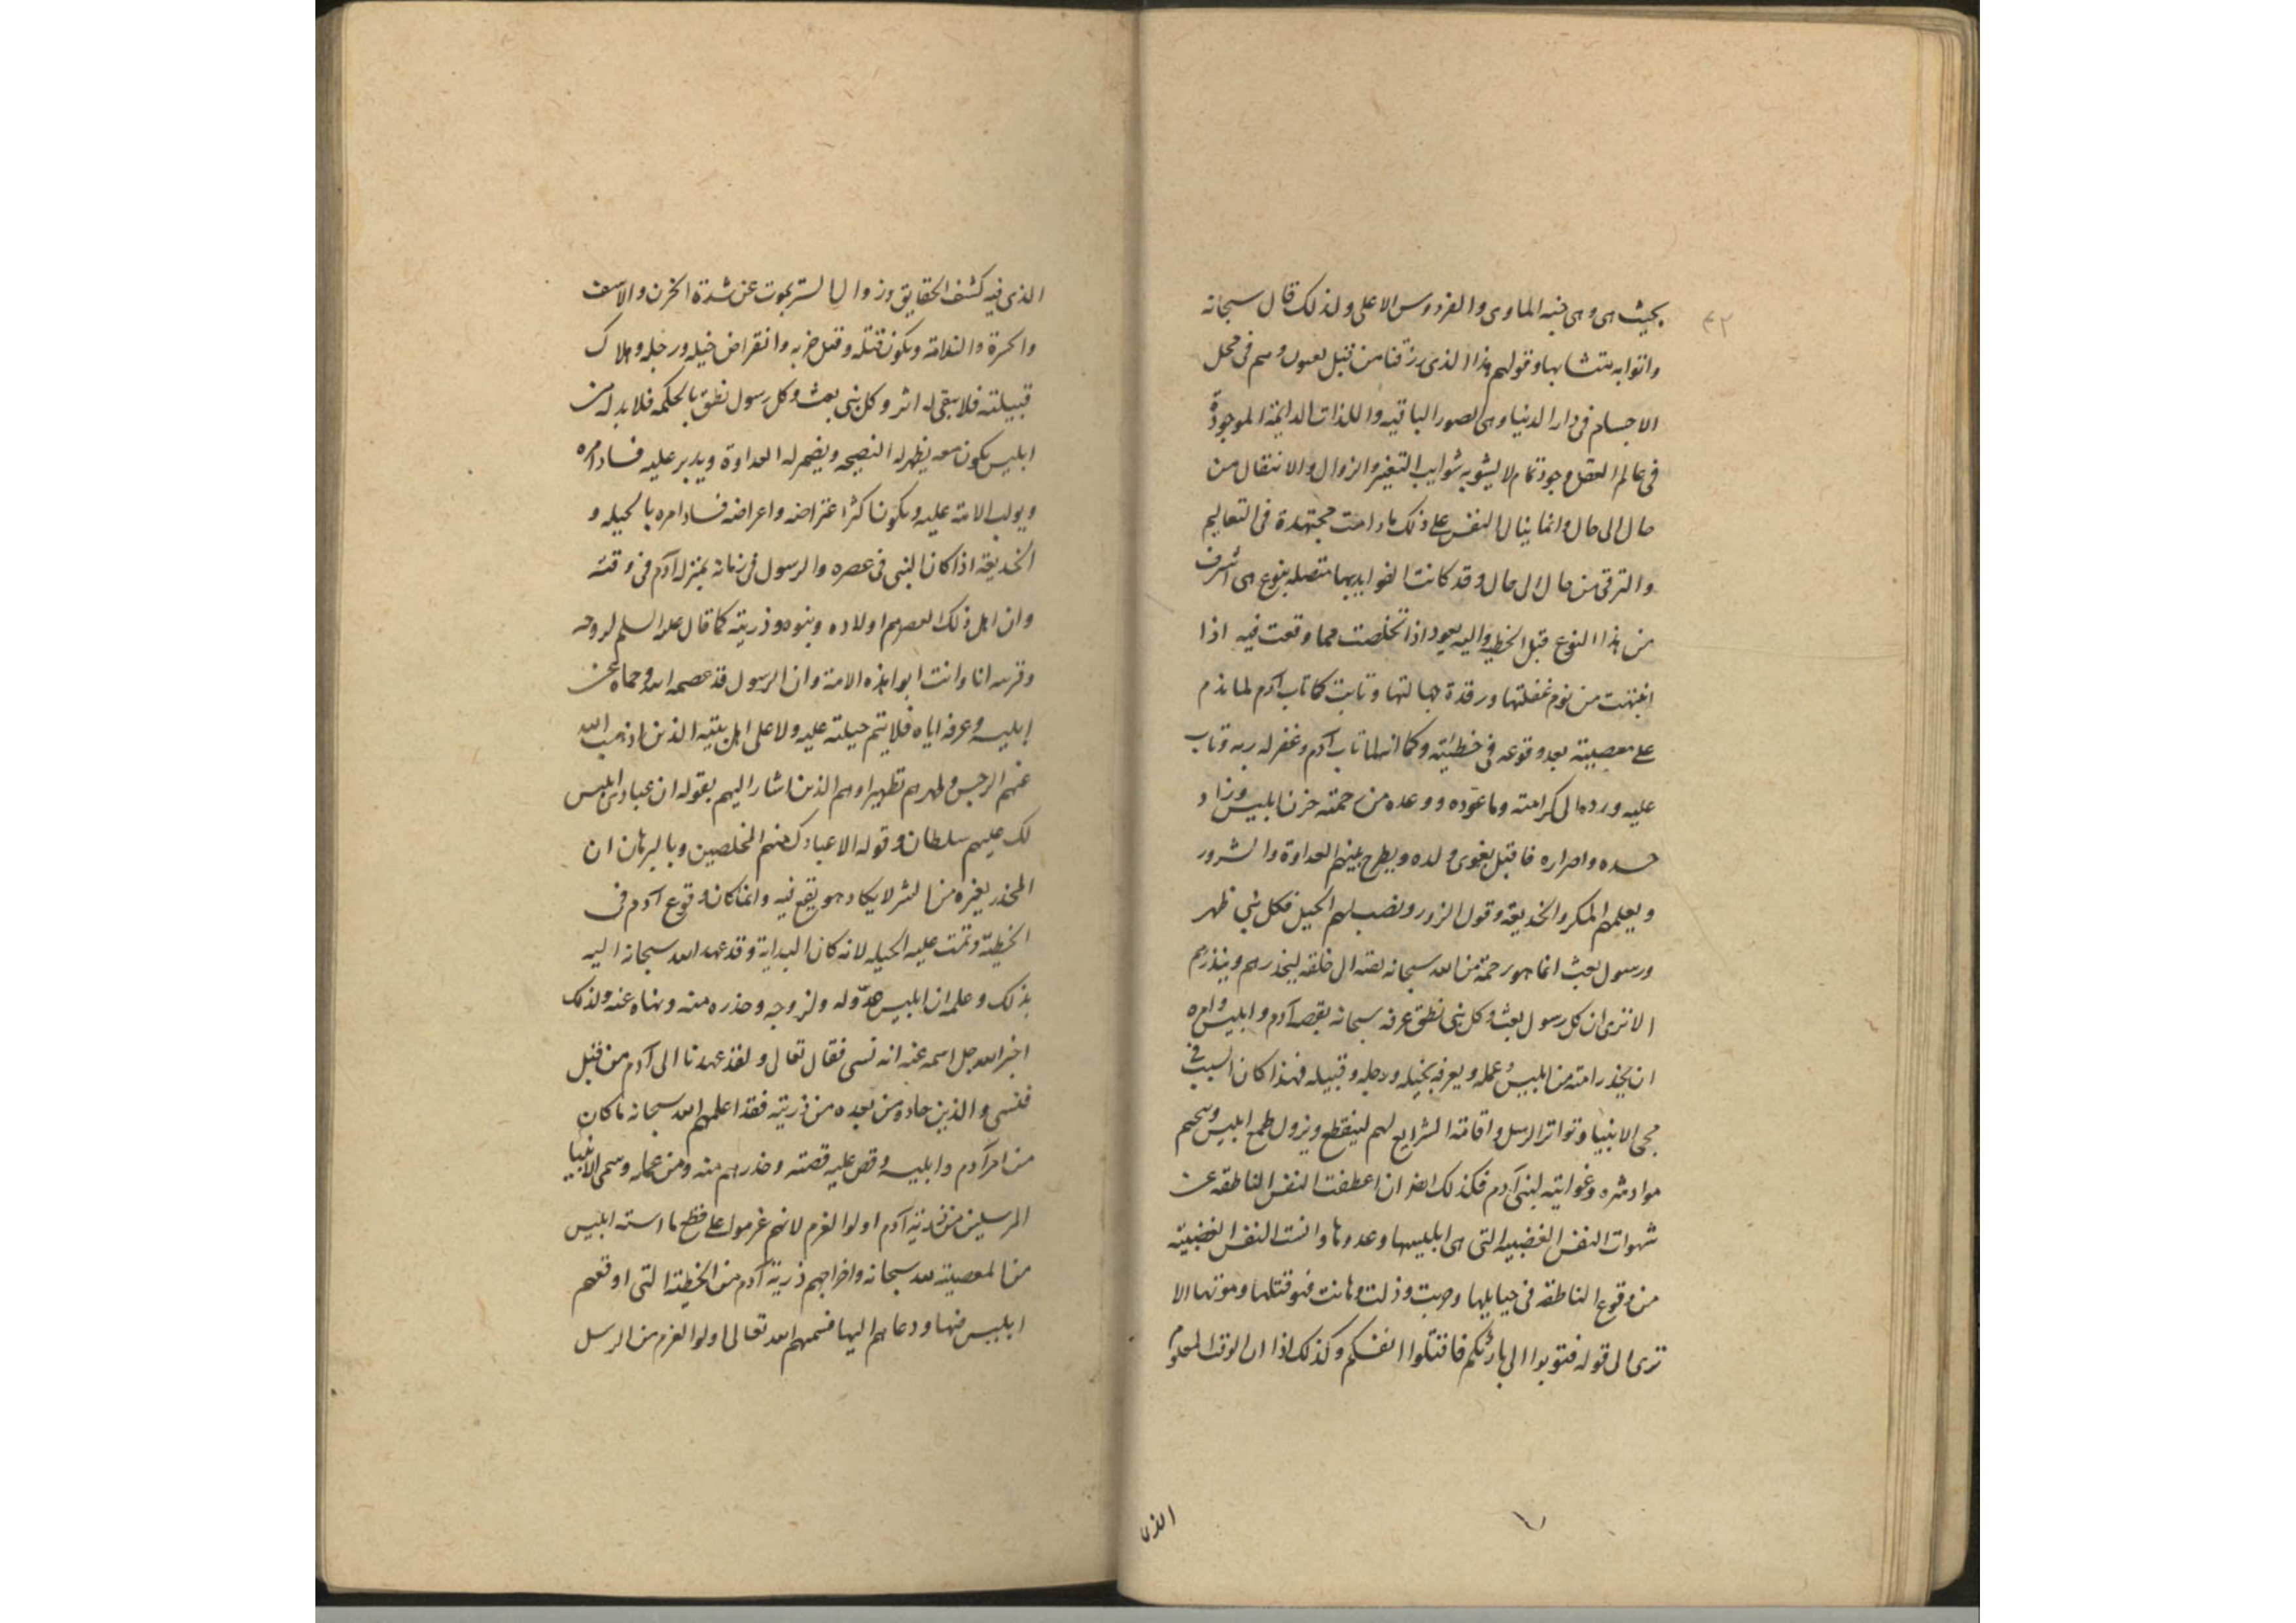 ٤٢
بحيث هى وهى جنة الماوى والفردوس الاعلى ولذلك قال سبحانه
واتوا به متشابها وقولهم هذا الذى رزقنا من قبل يعنون وهم فى محل
الاجسام فى دار الدنيا وهى الصور الباقيه واللذات الدايمة الموجودة
فى عالم العقل وجود تمام لا يشوبه شوايب التغير والزوال والانتقال من
حال الى حال وانما ينال النفس على ذلك ما دامت مجتهدة فى التعاليم
والترقى من حال الى حال وقد كانت الفوايد بها متصله بنوع هى اشرف
من هذا النوع قبل الخطية واليه يعود اذا تخلصت مما وقعت فيه اذا
انتبهت من نوم غفلتها ورقدة جهالتها وتابت كما تاب آدم لما ندم
على معصيته بعد وقوعه فى خطيئته وكما انه لما تاب آدم وغفر له ربه وتاب
عليه ورده الى كرامته وما عوده ووعده من رحمته حزن ابليس وزاد
حسده واصراره فاقبل يغوى ولده ويطرح بينهم العداوة والشرور
ويعلمهم المكر والخديعة وقول الزور ونصب لهم الحيل فكل نبي ظهر
ورسول بعث انما هو رحمة من الله سبحانه بعثه الى خلقه ليحذرهم وينذرهم
الا ترى ان كل رسول بعث وكل نبى نطق عرفه سبحانه بقصة آدم وابليس وامره
ان يحذر امته من ابليس وعمله ويعرفه بخيله ورجله وقبيله فهذا كان السبب فى
مجى الانبيا وتواتر الرسل واقامة الشرايع لهم لينقطع ويزول طمع ابليس وينحسم
مواد شره وغوايته لبنى آدم فكذلك ان اعطفت النفس الناطقه عن
شهوات النفس الغضبيه التى هى ابليسها وعدوها وانست النفس الغضبية
من وقوع الناطقه فى حبايلها وذلت وهانت فهو قتلها وموتها الا
ترى الى قوله فتوبوا الى بارئكم فاقتلوا انفسكم وكذلك اذا الوقت المعلوم
الذى
الذى فيه كشف الحقايق وزوال الستر يموت عن شدة الحزن والاسف
والحسرة والندامة ويكون قتله وقتل حزبه وانقراض خيله ورجله وهلاك
قبيلته فلا يبقى له اثر وكل نبى بعث وكل رسول نطق بالحكمه فلا بد له من
ابليس يكون معه يظهر له النصيحه ويضمر له العداوة ويدبر عليه فساد امره
ويولب الامة عليه ويكون اكثر اعتراضه واعراضه فساد امره بالحيله و
الخديعة اذا كان النبى فى عصره والرسول فى زمانه بمنزله آدم فى وقته
وان اهل ذلك العصر هم اولاده وبنوه وذريته كما قال عليه السلم لزوجه
انا وانت ابوا هذه الامة وان الرسول قد عصمه الله وحماه عن
ابليسه وعرفه اياه فلا يتم حيلته عليه ولا على اهل بيته الذين اذهب الله
عنهم الرجس وطهرهم تطهيرا وهم الذين اشار اليهم بقوله ان عبادى ليس
لك عليهم سلطان وقوله الا عبادك منهم المخلصين وبالبرهان ان
المحذر بغيره من الشر لا يكاد هو يقع فيه وانما كان وقوع آدم فى
الخطية وتمت عليه الحيله لانه كان البداية وقد عهد الله سبحانه اليه
بذلك وعلمه ان ابليس عدّو له ولزوجه وحذره منه ونهاه عنه ولذلك
اخبر الله جل اسمه عنه انه نسى فقال تعالى ولقد عهدنا الى آدم من قبل
فنسى والذين جاءوه من بعده من ذريته فقد اعلمهم الله سبحانه ما كان
من امر آدم وابليسه وقص عليه قصته وحذرهم منه ومن عمله وسمى الانبيا
المرسلين من ذرية آدم اولوا العزم لانهم عزموا على قطع ما اسسه ابليس
من المعصية لله سبحانه واخراجهم ذرية آدم من الخطية التى اوقعهم
ابليس فيها ودعاهم اليها فسمهم الله تعالى اولوا العزم من الرسل